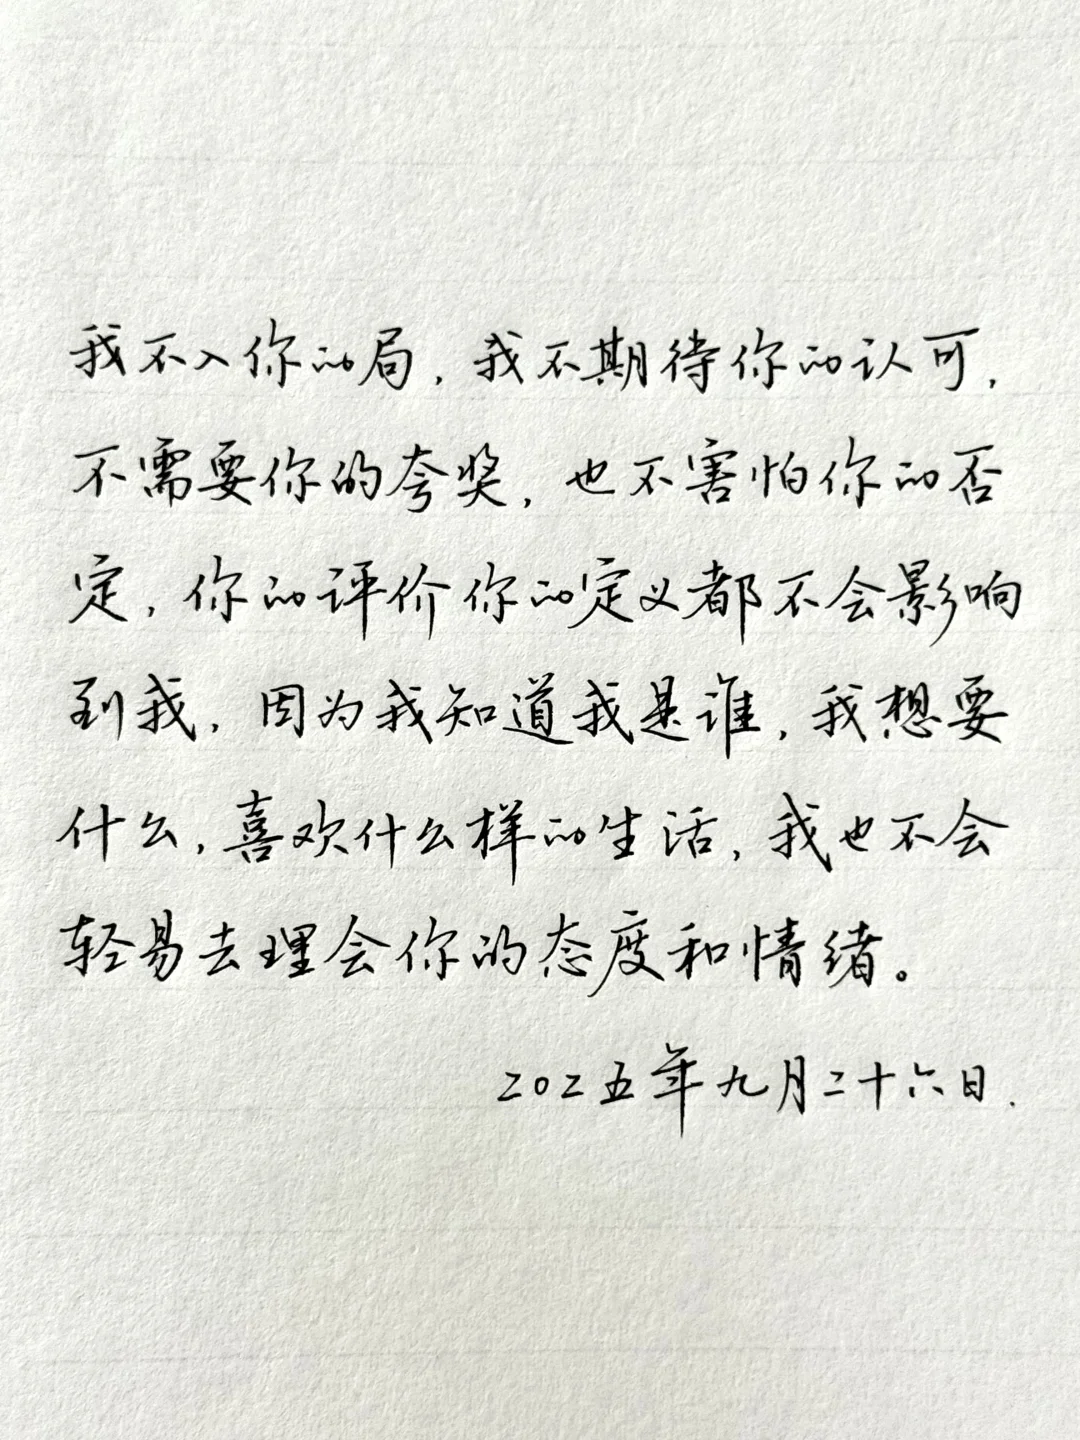 我不入你的局，我不期待你的认可，
不需要你的夸奖，也不害怕你的否
定，你的评价你的定义都不会影响
到我，因为我知道我是谁，我想要
什么，喜欢什么样的生活，我也不会
轻易去理会你的态度和情绪。
202五年九月二十六日.